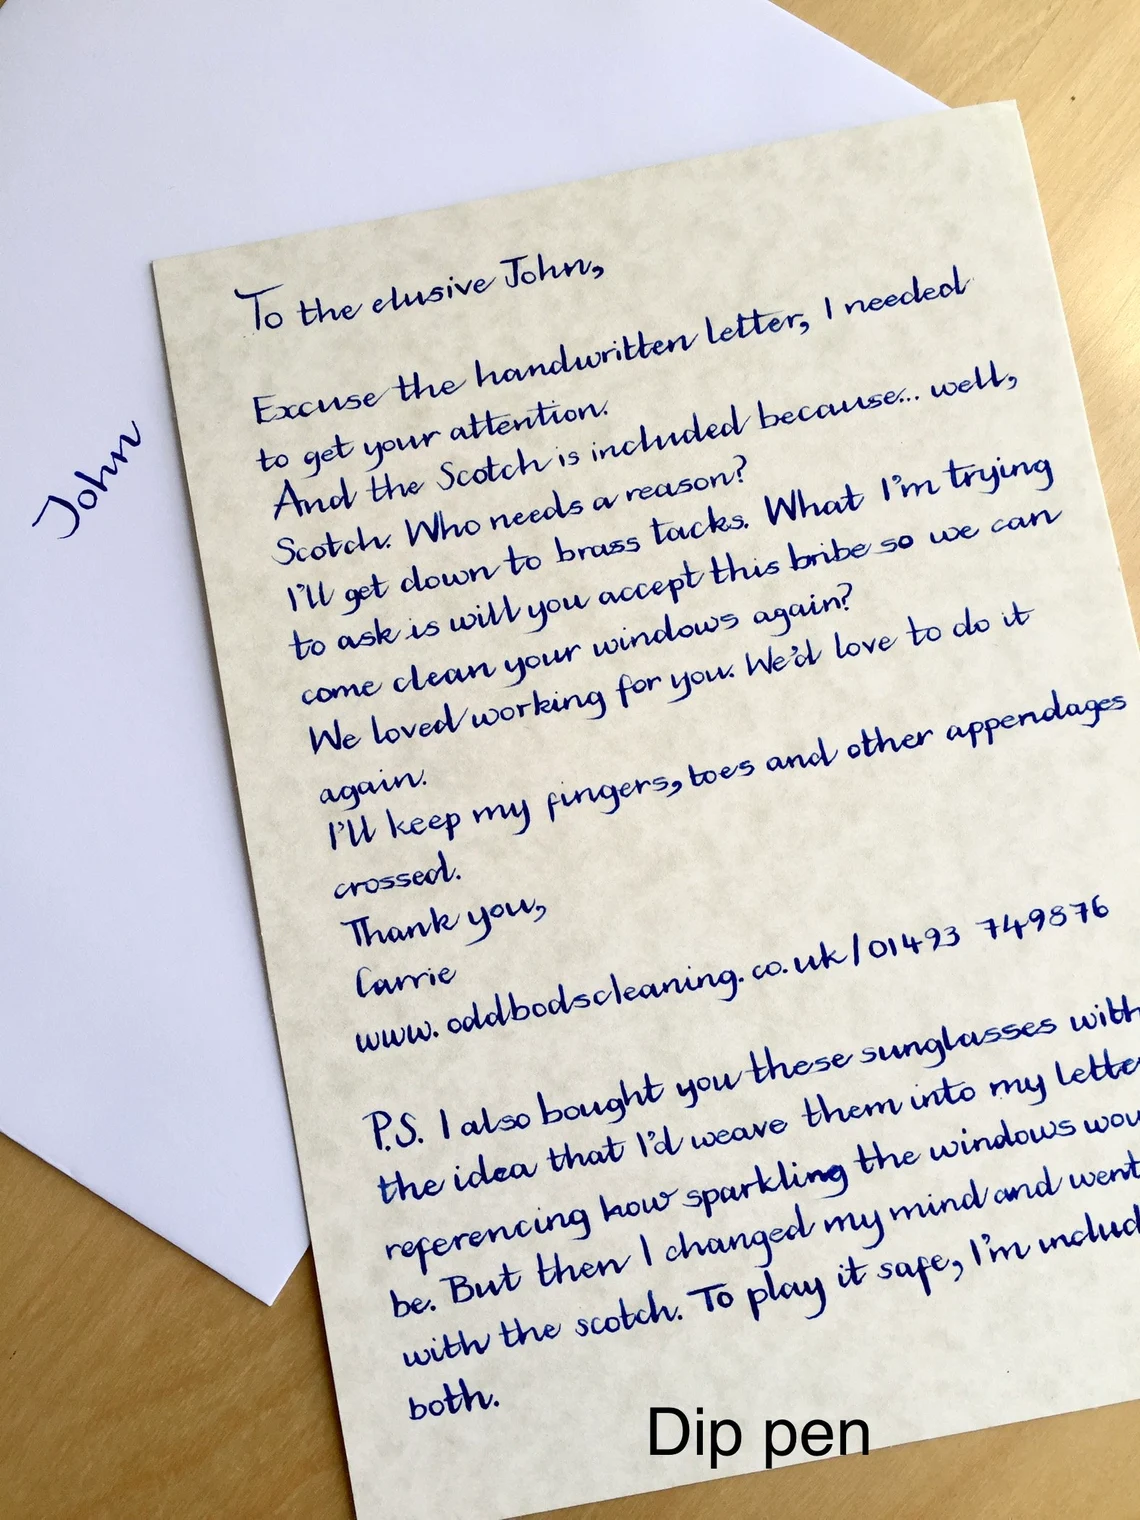 John
To the elusive John,
Excuse the handwritten letter, I needed
to get your attention.
And the Scotch is included because... well,
Scotch. Who needs a reason?
I'll get down to brass tacks. What I'm trying
to ask is will you accept this bribe so we can
come clean your windows again?
We loved working for you. We'd love to do it
again.
I'll keep my fingers, toes and other appendages
crossed.
Thank you,
Carrie
www.oddbodscleaning.co.uk/01493 749876
P.S. I also bought you these sunglasses with
the idea that I'd weave them into my lette
referencing how sparkling the windows wou
be. But then I changed my mind and went
with the scotch. To play it safe, I'm includ
both.
Dip pen